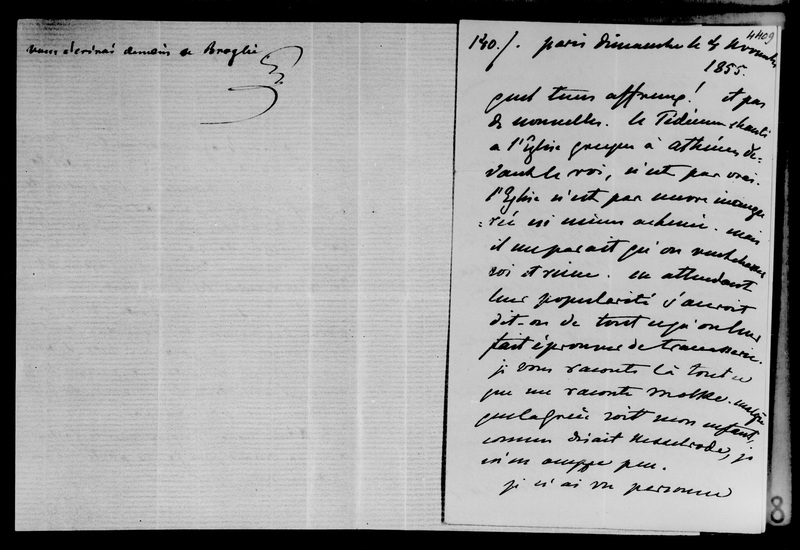 vous écrirai demain de Broglie
4409
140./. paris dimanche le 4 Novembre
1855.
quel tems affreux! et pas
de nouvelles. le Tédeum chanté
a l'Eglise grecque à Athènes de-
vant le roi, n'est pas vrai.
l'Eglise n'est pas encore inaugu
-rée ni même achevée. mais
il me parait qu'on veut chasser
roi et reine. en attendant
leur popularité s'accroit
dit-on de tout ce qu'on leur
fait éprouver de tracasserie.
je vous raconte là tout ce
que me raconte malgré
que la grèce soit mon enfant,
comme disait Nesselrode, je
m'en occupe peu.
je n'ai vu personne
8